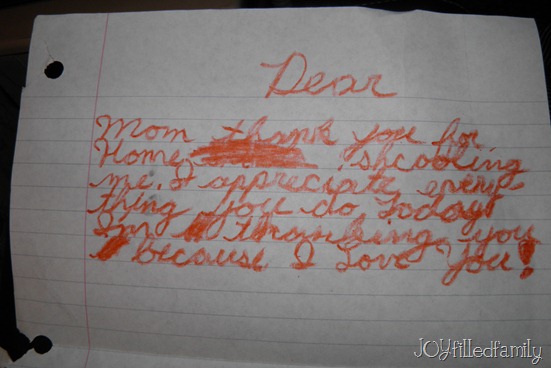 Dear
Mom thank you for
Home shcooling
me. I appreciate every
thing you do today
I'm thanking you
because I Love You!
JOYfilledfamily